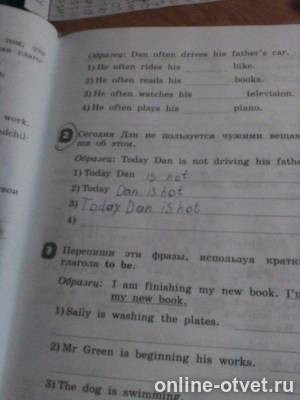 Образец: Dan often drives his father's car.
1) He often rides his bike.
2) He often reads his books.
3) He often watches his television.
4) He often plays his piano.
work.
2 Сегодня Дэн не пользуется чужими вещам
об этом.
Образец: Today Dan is not driving his fathe
1) Today Dan is not
2) Today Dan is not
3) Today Dan is not
4)
3 Перепиши эти фразы, используя кратк
глагола to be.
Образец: I am finishing my new book. I'm
my new book.
1) Sally is washing the plates.
2) Mr Green is beginning his works.
3) The dog is swimming.
online-otvet.ru